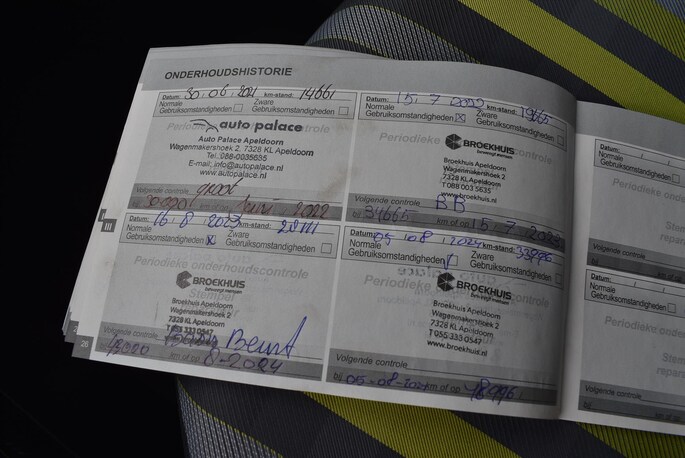 ONDERHOUDSHISTORIE
Datum: 30.06.2021 km-stand: 14661
Normale Gebruiksomstandigheden
Zware Gebruiksomstandigheden
auto palace
Auto Palace Apeldoorn
Wagenmakershoek 2, 7328 KL Apeldoorn
Tel.:088-0035685
E-mail: info@autopalace.nl
www.autopalace.nl
Volgende controle groot
bij 30.000 km of op Juni 2022
Datum: 15.7.2022 km-stand: 19665
Normale Gebruiksomstandigheden
Zware Gebruiksomstandigheden
Periodieke controle
BROEKHUIS
Beheerst mensen
Broekhuis Apeldoorn
Wagenmakershoek 2
7328 KL Apeldoorn
T 088 003 5635
www.broekhuis.nl
Volgende controle BB
bij 34665 km of op 15.7.2023
III
Datum: 16.8.2023 km-stand:
Normale Gebruiksomstandigheden
Zware Gebruiksomstandigheden
Periodieke onderhoudscontrole
Stempel
BROEKHUIS
Broekhuis Apeldoorn
Wagenmakershoek 2
7328 KL Apeldoorn
T 055 333 0547
Volgende controle
km of op 8-2024
Datum: 05.08.2024 km-stand: 33996
Normale Gebruiksomstandigheden
Zware Gebruiksomstandigheden
BROEKHUIS
Broekhuis Apeldoorn
Wagenmakershoek 2
7328 KL Apeldoorn
T 055 333 0547
www.broekhuis.nl
Volgende controle
bij 05-08-202 km of op 48996
26
Datum: / /
Normale
Gebruiksomstandigheden
Periodieke onder
repara
Volgende controle
bij
Datum: / /
Normale
Gebruiksomstandigheden
Periodieke onde
repara
Volgende controle
bij